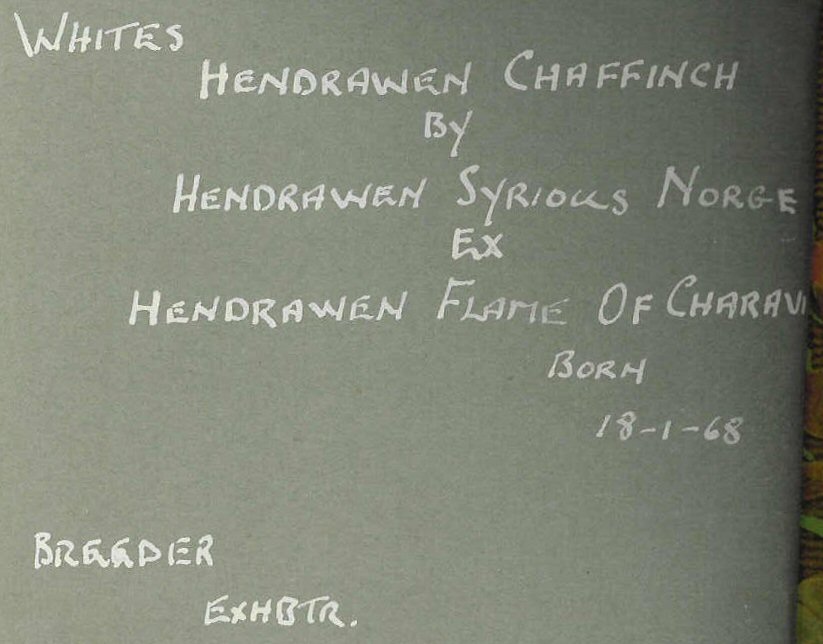 WHITES
HENDRAWEN CHAFFINCH
BY
HENDRAWEN SYRIOUS NORGE
EX
HENDRAWEN FLAME OF CHARAVI
BORN
18-1-68
BREEDER
EXHBTR.